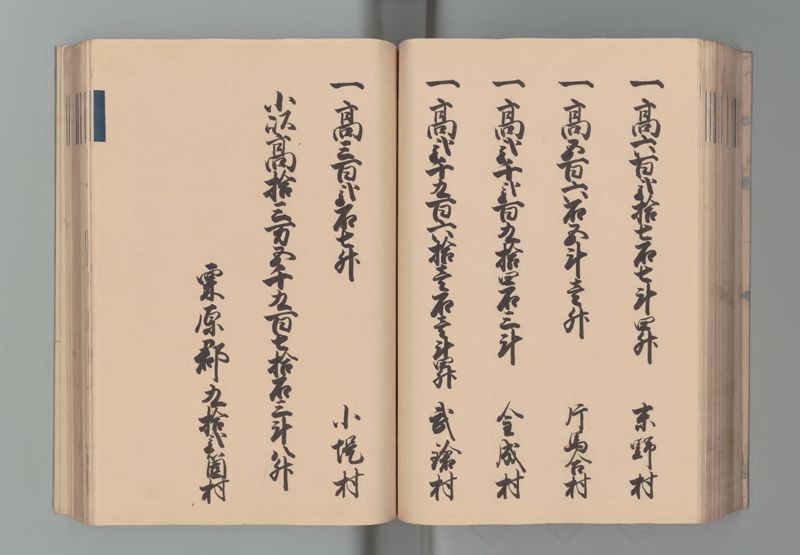 一高六百弐拾七石七斗四升 末野村
一高五百六石五斗壱升 片馬合村
一高弐千弐百九拾四石三斗 金成村
一高弐千九百六拾壱石壱斗四升 武鎗村
一高三百弐石七升 小堤村
小以高拾三万五千九百七拾石三斗八升
栗原郡九拾弐箇村